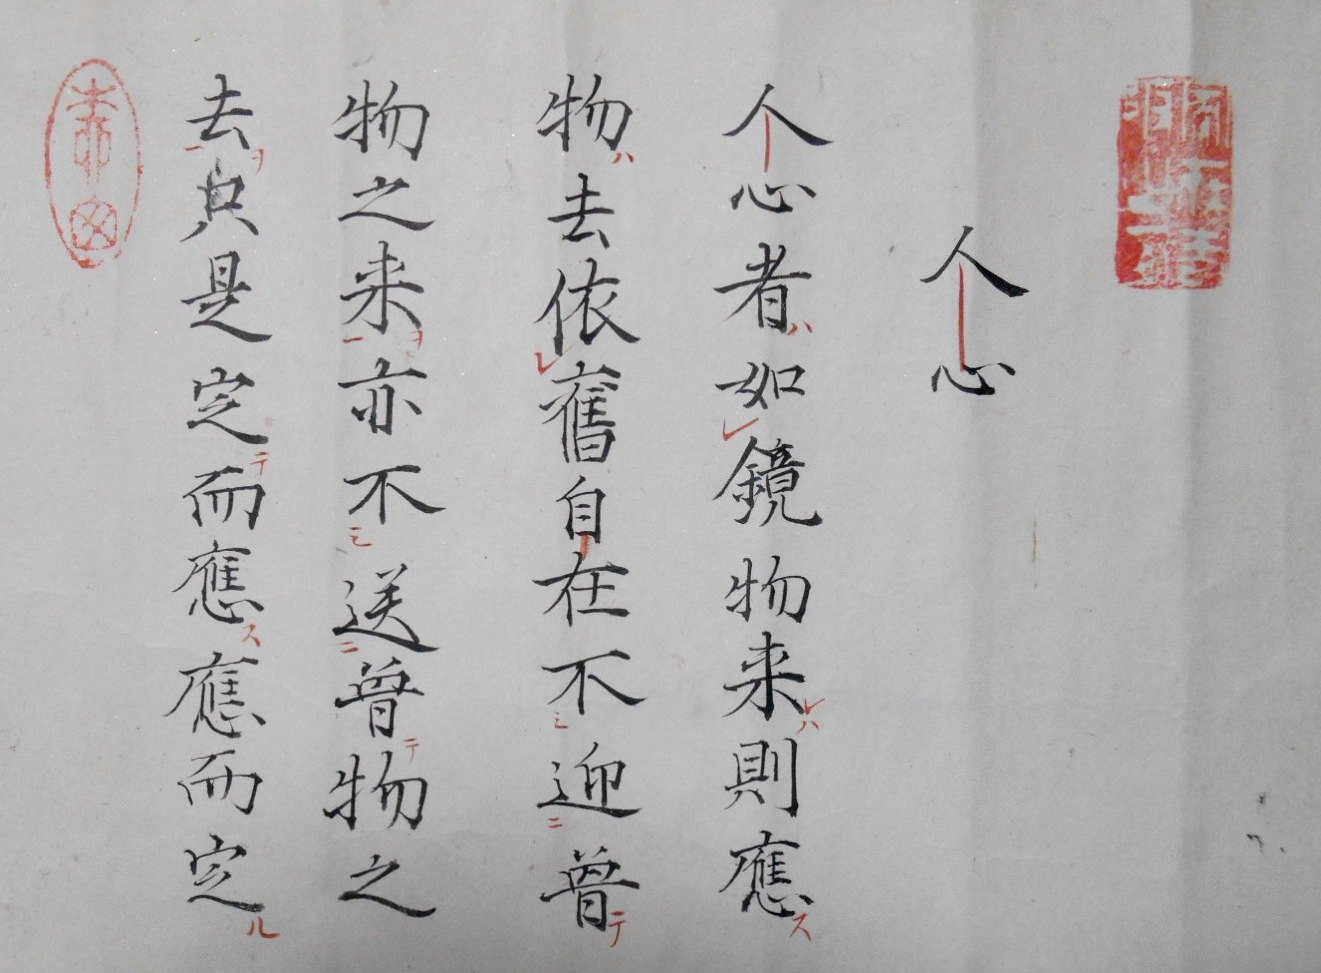 人心
人心者ハ如レ鏡物来レハ則應ス
物ハ去依レ舊自在不三迎二曽テ
物之来ヲ一亦不三送二曽テ物之
去ヲ一只是定テ而應ス應而定ル